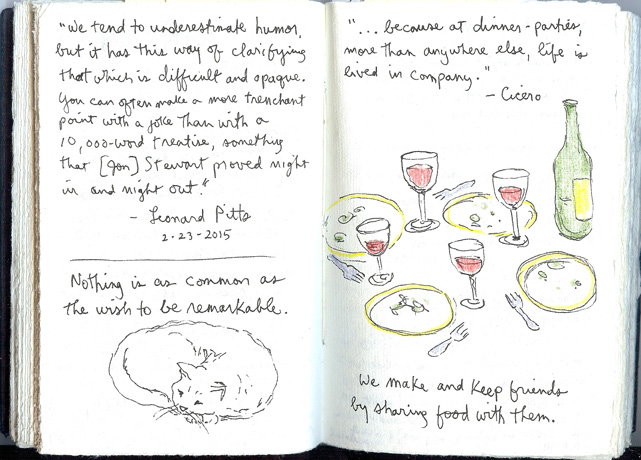 "We tend to underestimate humor,
but it has this way of clarifying
that which is difficult and opaque.
You can often make a more trenchant
point with a joke than with a
10,000-word treatise, something
that [Jon] Stewart proved night
in and night out."
- Leonard Pitts
2-23-2015
Nothing is as common as
the wish to be remarkable.
"... because at dinner-parties,
more than anywhere else, life is
lived in company."
- Cicero
We make and keep friends
by sharing food with them.